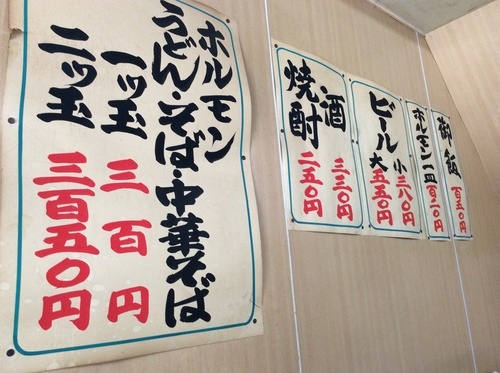 ホルモン
うどん・そば・中華そば
一ッ玉 三百円
二ッ玉 三百五〇円
酒 三三〇円
焼酎 二五〇円
ビール 小 三八〇円
大 五五〇円
ホルモン一皿 百二〇円
御飯 百五〇円